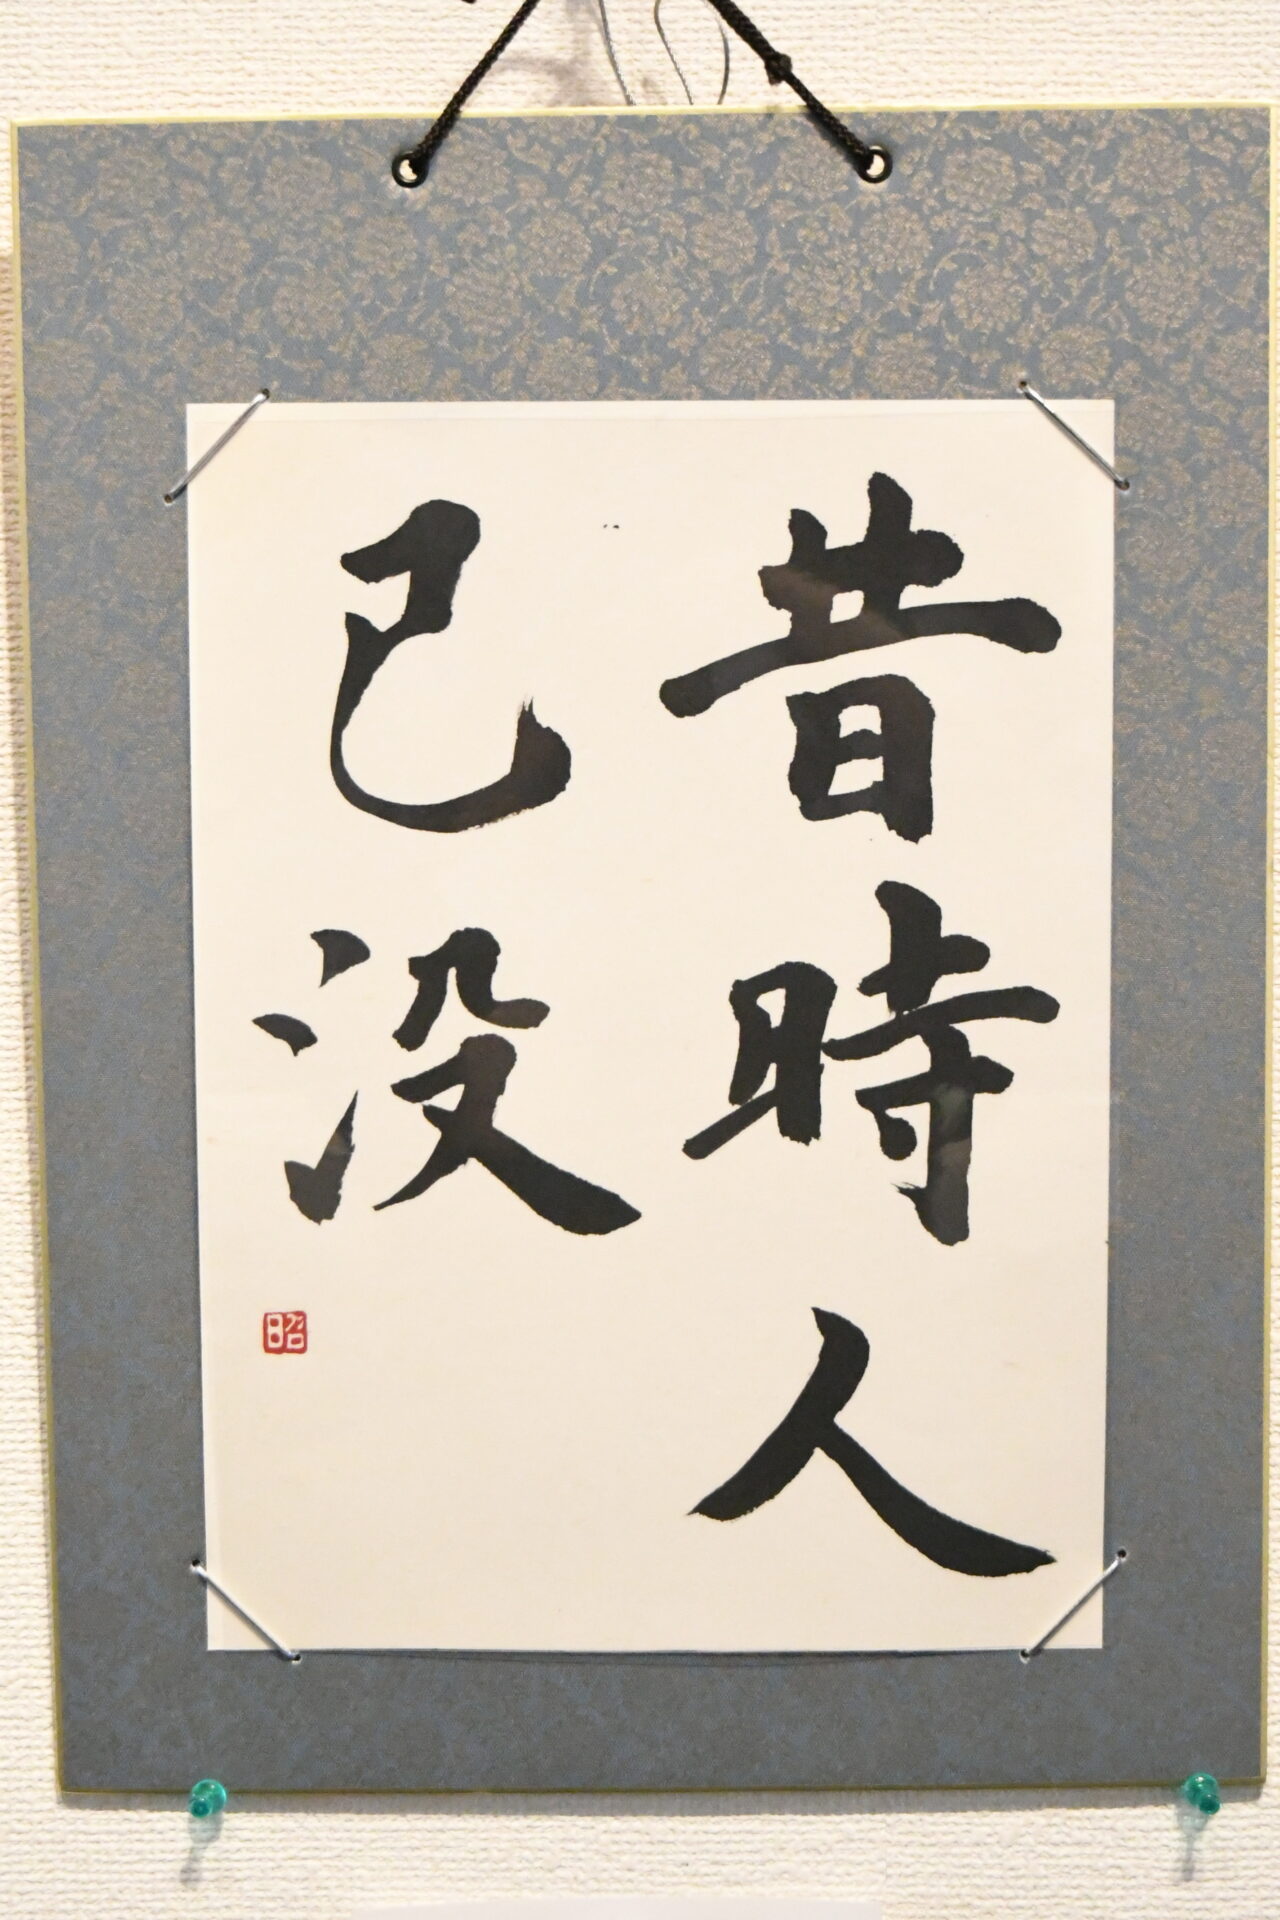 昔時人
已没
昭